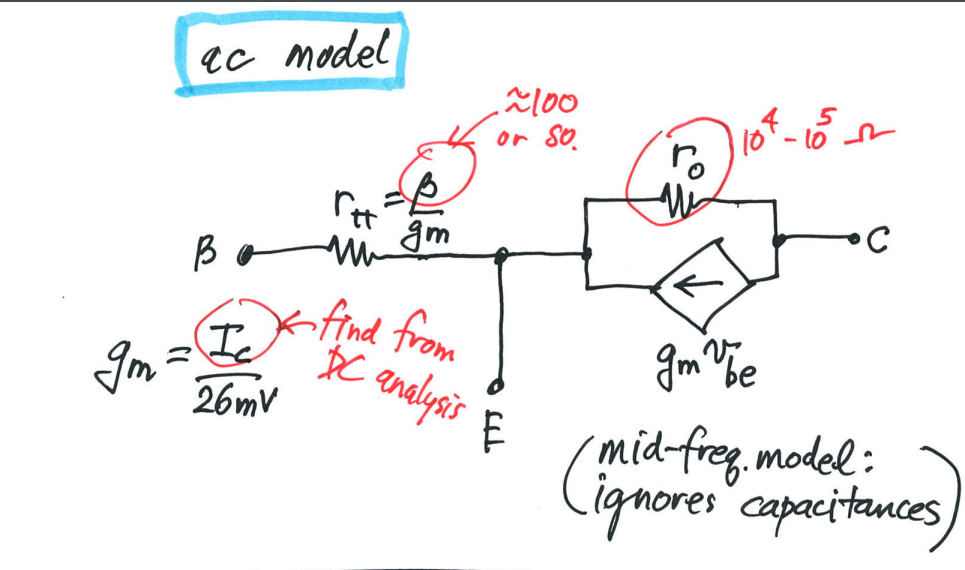 ac model
≈100
or so.
10^4 - 10^5 Ω
r_o
r_π = β/gm
B
C
gm = I_c/26mV
find from
DC analysis
E
gm v_be
(mid-freq. model:
ignores capacitances)